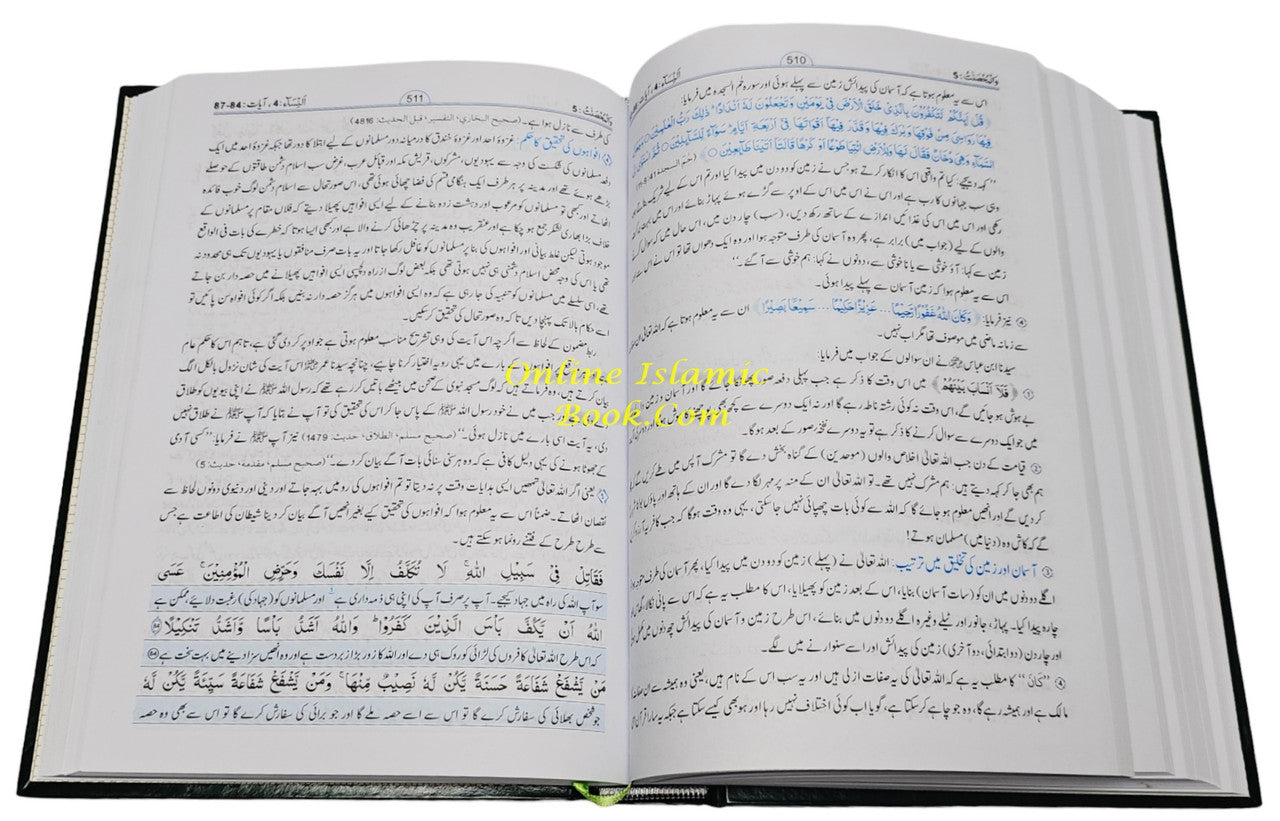 اَلنِّسَآء : 4
510
وَالْمُحْصَنٰتُ : 5
اس سے یہ معلوم ہوتا ہے کہ آسمان کی پیدائش زمین سے پہلے ہوئی اور سورہ حٰم السجدہ میں فرمایا:
﴿قُلْ اَىِٕنَّكُمْ لَتَكْفُرُوْنَ بِالَّذِيْ خَلَقَ الْاَرْضَ فِيْ يَوْمَيْنِ وَتَجْعَلُوْنَ لَهٗٓ اَنْدَادًا ۭ ذٰلِكَ رَبُّ الْعٰلَمِيْنَ ۝
فِيْهَا رَوَاسِيَ مِنْ فَوْقِهَا وَبٰرَكَ فِيْهَا وَقَدَّرَ فِيْهَآ اَقْوَاتَهَا فِيْٓ اَرْبَعَةِ اَيَّامٍ ۭ سَوَاۗءً لِّلسَّاۗىِٕلِيْنَ ۝ ثُمَّ اسْتَوٰٓى
السَّمَاۗءِ وَهِيَ دُخَانٌ فَقَالَ لَهَا وَلِلْاَرْضِ ائْتِيَا طَوْعًا اَوْ كَرْهًا ۭ قَالَتَآ اَتَيْنَا طَاۗىِٕعِيْنَ ۝﴾ (حٰم السجدة 41:
”کہہ دیجیے: کیا تم واقعی اس کا انکار کرتے ہو جس نے زمین کو دو دن میں پیدا کیا اور تم اس کے لیے شریک
وہی سب جہانوں کا رب ہے اور اس نے اس میں اس کے اوپر سے گڑے ہوئے پہاڑ بنائے اور اس میں
رکھی اور اس میں اس کی غذائیں اندازے کے ساتھ رکھ دیں، (سب) چار دن میں، اس حال میں کہ سوال
والوں کے لیے (جواب میں) برابر ہے، پھر وہ آسمان کی طرف متوجہ ہوا اور وہ ایک دھواں تھا تو اس نے اس سے
زمین سے کہا: آؤ خوشی سے یا ناخوشی سے، دونوں نے کہا: ہم خوشی سے آ گئے۔“
اس سے یہ معلوم ہوا کہ زمین آسمان سے پہلے پیدا ہوئی۔
④ نیز فرمایا: ﴿وَكَانَ اللّٰهُ غَفُوْرًا رَّحِيْمًا ... عَزِيْزًا حَكِيْمًا ... سَمِيْعًا بَصِيْرًا﴾ ان سے یہ معلوم ہوتا ہے کہ اللہ تعالیٰ ان
سے زمانہ ماضی میں موصوف تھا مگر اب نہیں۔
سیدنا ابن عباس رضی اللہ عنہ نے ان سوالوں کے جواب میں فرمایا:
① ﴿فَلَآ اَنْسَابَ بَيْنَهُمْ﴾ میں اس وقت کا ذکر ہے جب پہلی دفعہ صور پھونکا جائے گا اور آسمان و زمین
بے ہوش ہو جائیں گے، اس وقت نہ کوئی رشتہ ناطہ رہے گا اور نہ ایک دوسرے سے کچھ
میں جو ایک دوسرے سے سوال کرنے کا ذکر ہے تو یہ دوسرے نفخۂ صور کے بعد ہو گا۔
② قیامت کے دن جب اللہ تعالیٰ اخلاص والوں (موحدین) کے گناہ بخش دے گا تو مشرک آپس میں صلاح کریں گے
ہم بھی جا کر کہہ دیتے ہیں: ہم مشرک نہیں تھے۔ تو اللہ تعالیٰ ان کے منہ پر مہر لگا دے گا اور ان کے ہاتھ اور پاؤں
کر دیں گے اور انھیں معلوم ہو جائے گا کہ اللہ سے کوئی بات چھپائی نہیں جا سکتی، یہی وہ وقت ہو گا کہ جب کافر یہ آرزو
گے کہ کاش وہ (دنیا میں) مسلمان ہوتے!
③ آسمان اور زمین کی تخلیق میں ترتیب: اللہ تعالیٰ نے (پہلے) زمین کو دو دن میں پیدا کیا، پھر آسمان کی طرف
اگلے دو دنوں میں ان کو (سات آسمان) بنایا، اس کے بعد زمین کو پھیلایا، اس کا مطلب یہ ہے کہ اس سے پانی نکالا،
چارہ پیدا کیا۔ پہاڑ، جانور اور ٹیلے وغیرہ اگلے دو دنوں میں بنائے، اس طرح زمین و آسمان کی پیدائش چھ دنوں میں
اور چار دن (دو ابتدائی، دو آخری) زمین کی پیدائش اور اسے سنوارنے میں لگے۔
④ ”كَانَ“ کا مطلب یہ ہے کہ اللہ تعالیٰ کی یہ صفات ازلی ہیں اور یہ سب اس کے نام ہیں، یعنی وہ ہمیشہ سے ان
مالک ہے اور ہمیشہ رہے گا، وہ جو چاہے کر سکتا ہے، گویا اب کوئی اختلاف نہیں رہا اور ہو بھی کیسے سکتا ہے جبکہ یہ سارا قرآن
وَالْمُحْصَنٰتُ : 5
511
اَلنِّسَآء : 4، آیات : 84-87
کی طرف سے نازل ہوا ہے۔ (صحيح البخاري، التفسير، قبل الحديث: 4816)
افواہوں کی تحقیق کا حکم: غزوۂ احد اور غزوۂ خندق کا درمیانہ دور مسلمانوں کے لیے ابتلا کا دور تھا جبکہ غزوۂ احد میں ایک
دفعہ مسلمانوں کی شکست کی وجہ سے یہودیوں، مشرکوں، قریش مکہ اور قبائل عرب غرض سب اسلام دشمن طاقتوں کے حوصلے
بڑھے ہوئے تھے اور مدینہ پر ہر طرف ایک ہنگامی قسم کی فضا چھائی ہوئی تھی، اس صورتحال سے اسلام دشمن لوگ خوب فائدہ
اٹھاتے اور کبھی تو مسلمانوں کو مرعوب اور دہشت زدہ بنانے کے لیے ایسی افواہیں پھیلا دیتے کہ فلاں مقام پر مسلمانوں کے
خلاف بڑا بھاری لشکر جمع ہو چکا ہے اور عنقریب وہ مدینہ پر چڑھائی کرنے والا ہے اور کبھی ایسا ہوتا کہ خطرے کی بات فی الواقع
موجود ہوتی لیکن غلط بیانی اور افواہوں کی بنا پر مسلمانوں کو غافل رکھا جاتا اور یہ بات صرف منافقوں یا یہودیوں تک ہی محدود نہ
تھی یا اس کی وجہ محض اسلام دشمنی ہی نہیں ہوتی تھی بلکہ بعض لوگ ازراہ دلچسپی ایسی افواہیں پھیلانے میں حصہ دار بن جاتے
تھے، اسی سلسلے میں مسلمانوں کو تنبیہ کی جا رہی ہے کہ وہ ایسی افواہوں میں ہرگز حصہ دار نہ بنیں بلکہ اگر کوئی افواہ سن پائیں تو
اسے حکام بالا تک پہنچا دیں تاکہ وہ صورتحال کی تحقیق کر سکیں۔
ربط مضمون کے لحاظ سے اگرچہ اس آیت کی وہی تشریح مناسب معلوم ہوتی ہے جو اوپر کر دی گئی ہے، تاہم اس کا حکم عام
ہے افواہوں کے بارے میں یہی رویہ اختیار کرنا چاہیے، چنانچہ سیدنا عمر رضی اللہ عنہ اس آیت کی شان نزول بالکل الگ
بیان کرتے ہیں، وہ فرماتے ہیں کہ لوگ مسجد نبوی کے صحن میں بیٹھے باتیں کر رہے تھے کہ رسول اللہ ﷺ نے اپنی بیویوں کو طلاق
جب میں نے خود رسول اللہ ﷺ کے پاس جا کر اس کی تحقیق کی تو آپ نے بتایا کہ آپ ﷺ نے طلاق نہیں
دی، یہ آیت اسی بارے میں نازل ہوئی۔“ (صحیح مسلم، الطلاق، حدیث: 1479) نیز آپ ﷺ نے فرمایا: ”کسی آدمی
کے جھوٹا ہونے کی یہی دلیل کافی ہے کہ وہ ہر سنی سنائی بات آگے بیان کر دے۔“ (صحیح مسلم، مقدمہ، حدیث: 5)
یعنی اگر اللہ تعالیٰ تمھیں ایسی ہدایات وقت پر نہ دیتا تو تم افواہوں کی رو میں بہہ جاتے اور دینی اور دنیوی دونوں لحاظ سے
نقصان اٹھاتے۔ ضمناً اس سے یہ معلوم ہوا کہ افواہوں کی تحقیق کیے بغیر انھیں آگے بیان کر دینا شیطان کی اطاعت ہے جس
سے طرح طرح کے فتنے رونما ہو سکتے ہیں۔
فَقَاتِلْ فِيْ سَبِيْلِ اللّٰهِ ۚ لَا تُكَلَّفُ اِلَّا نَفْسَكَ وَحَرِّضِ الْمُؤْمِنِيْنَ ۚ عَسَى
سو آپ اللہ کی راہ میں جہاد کیجیے۔ آپ پر صرف آپ کی اپنی ہی ذمہ داری ہے اور مسلمانوں کو (جہاد کی) رغبت دلائیے، ممکن ہے
اللّٰهُ اَنْ يَّكُفَّ بَاْسَ الَّذِيْنَ كَفَرُوْا ۭ وَاللّٰهُ اَشَدُّ بَاْسًا وَّاَشَدُّ تَنْكِيْلًا ۝
کہ اس طرح اللہ تعالیٰ کافروں کی لڑائی کو روک ہی دے اور اللہ کا زور بڑا زبردست ہے اور وہ انھیں سزا دینے میں بہت سخت ہے
مَنْ يَّشْفَعْ شَفَاعَةً حَسَنَةً يَّكُنْ لَّهٗ نَصِيْبٌ مِّنْهَا ۚ وَمَنْ يَّشْفَعْ شَفَاعَةً سَيِّئَةً يَّكُنْ لَّهٗ
جو شخص بھلائی کی سفارش کرے گا تو اس سے اسے حصہ ملے گا اور جو برائی کی سفارش کرے گا تو اس سے بھی وہ حصہ
Online Islamic
Book.Com